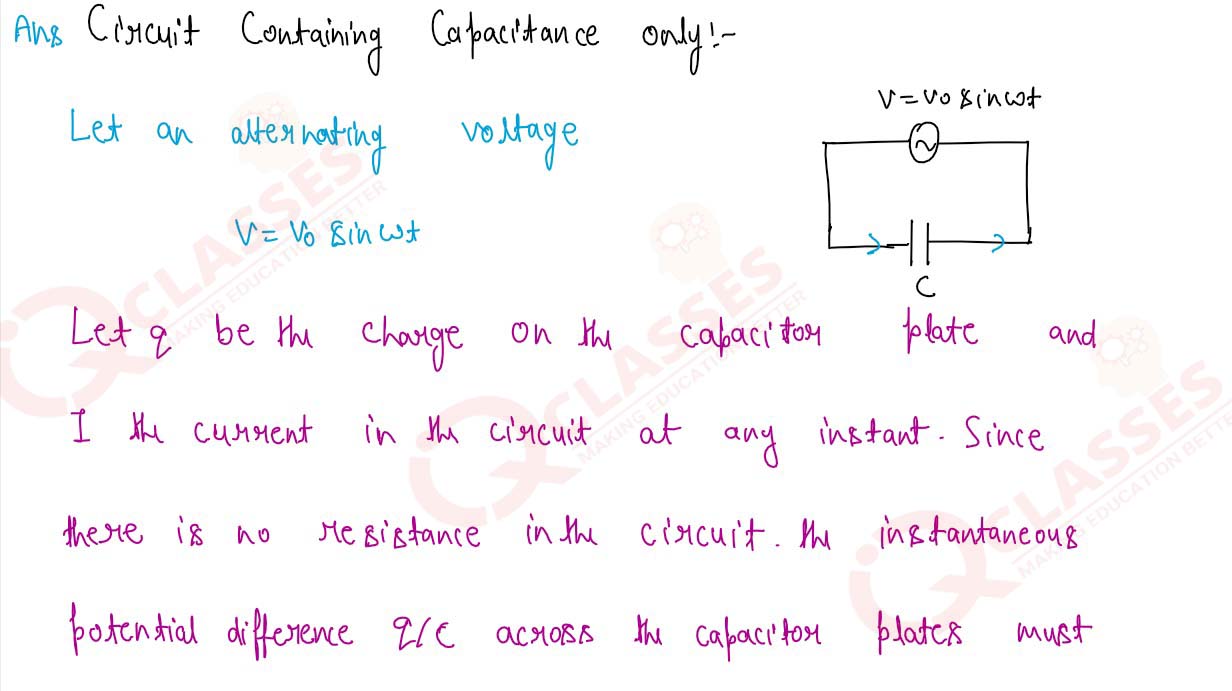 Ans Circuit Containing Capacitance only:-
V=V0 sinωt
Let an alternating voltage
V= V0 sinωt
C
Let q be the charge on the capacitor plate and
I the current in the circuit at any instant. Since
there is no resistance in the circuit. the instantaneous
potential difference q/C across the capacitor plates must
CLASSES
MAKING EDUCATION BETTER
CLASSES
MAKING EDUCATION BETTER
CLASSES
MAKING EDUCATION BETTER